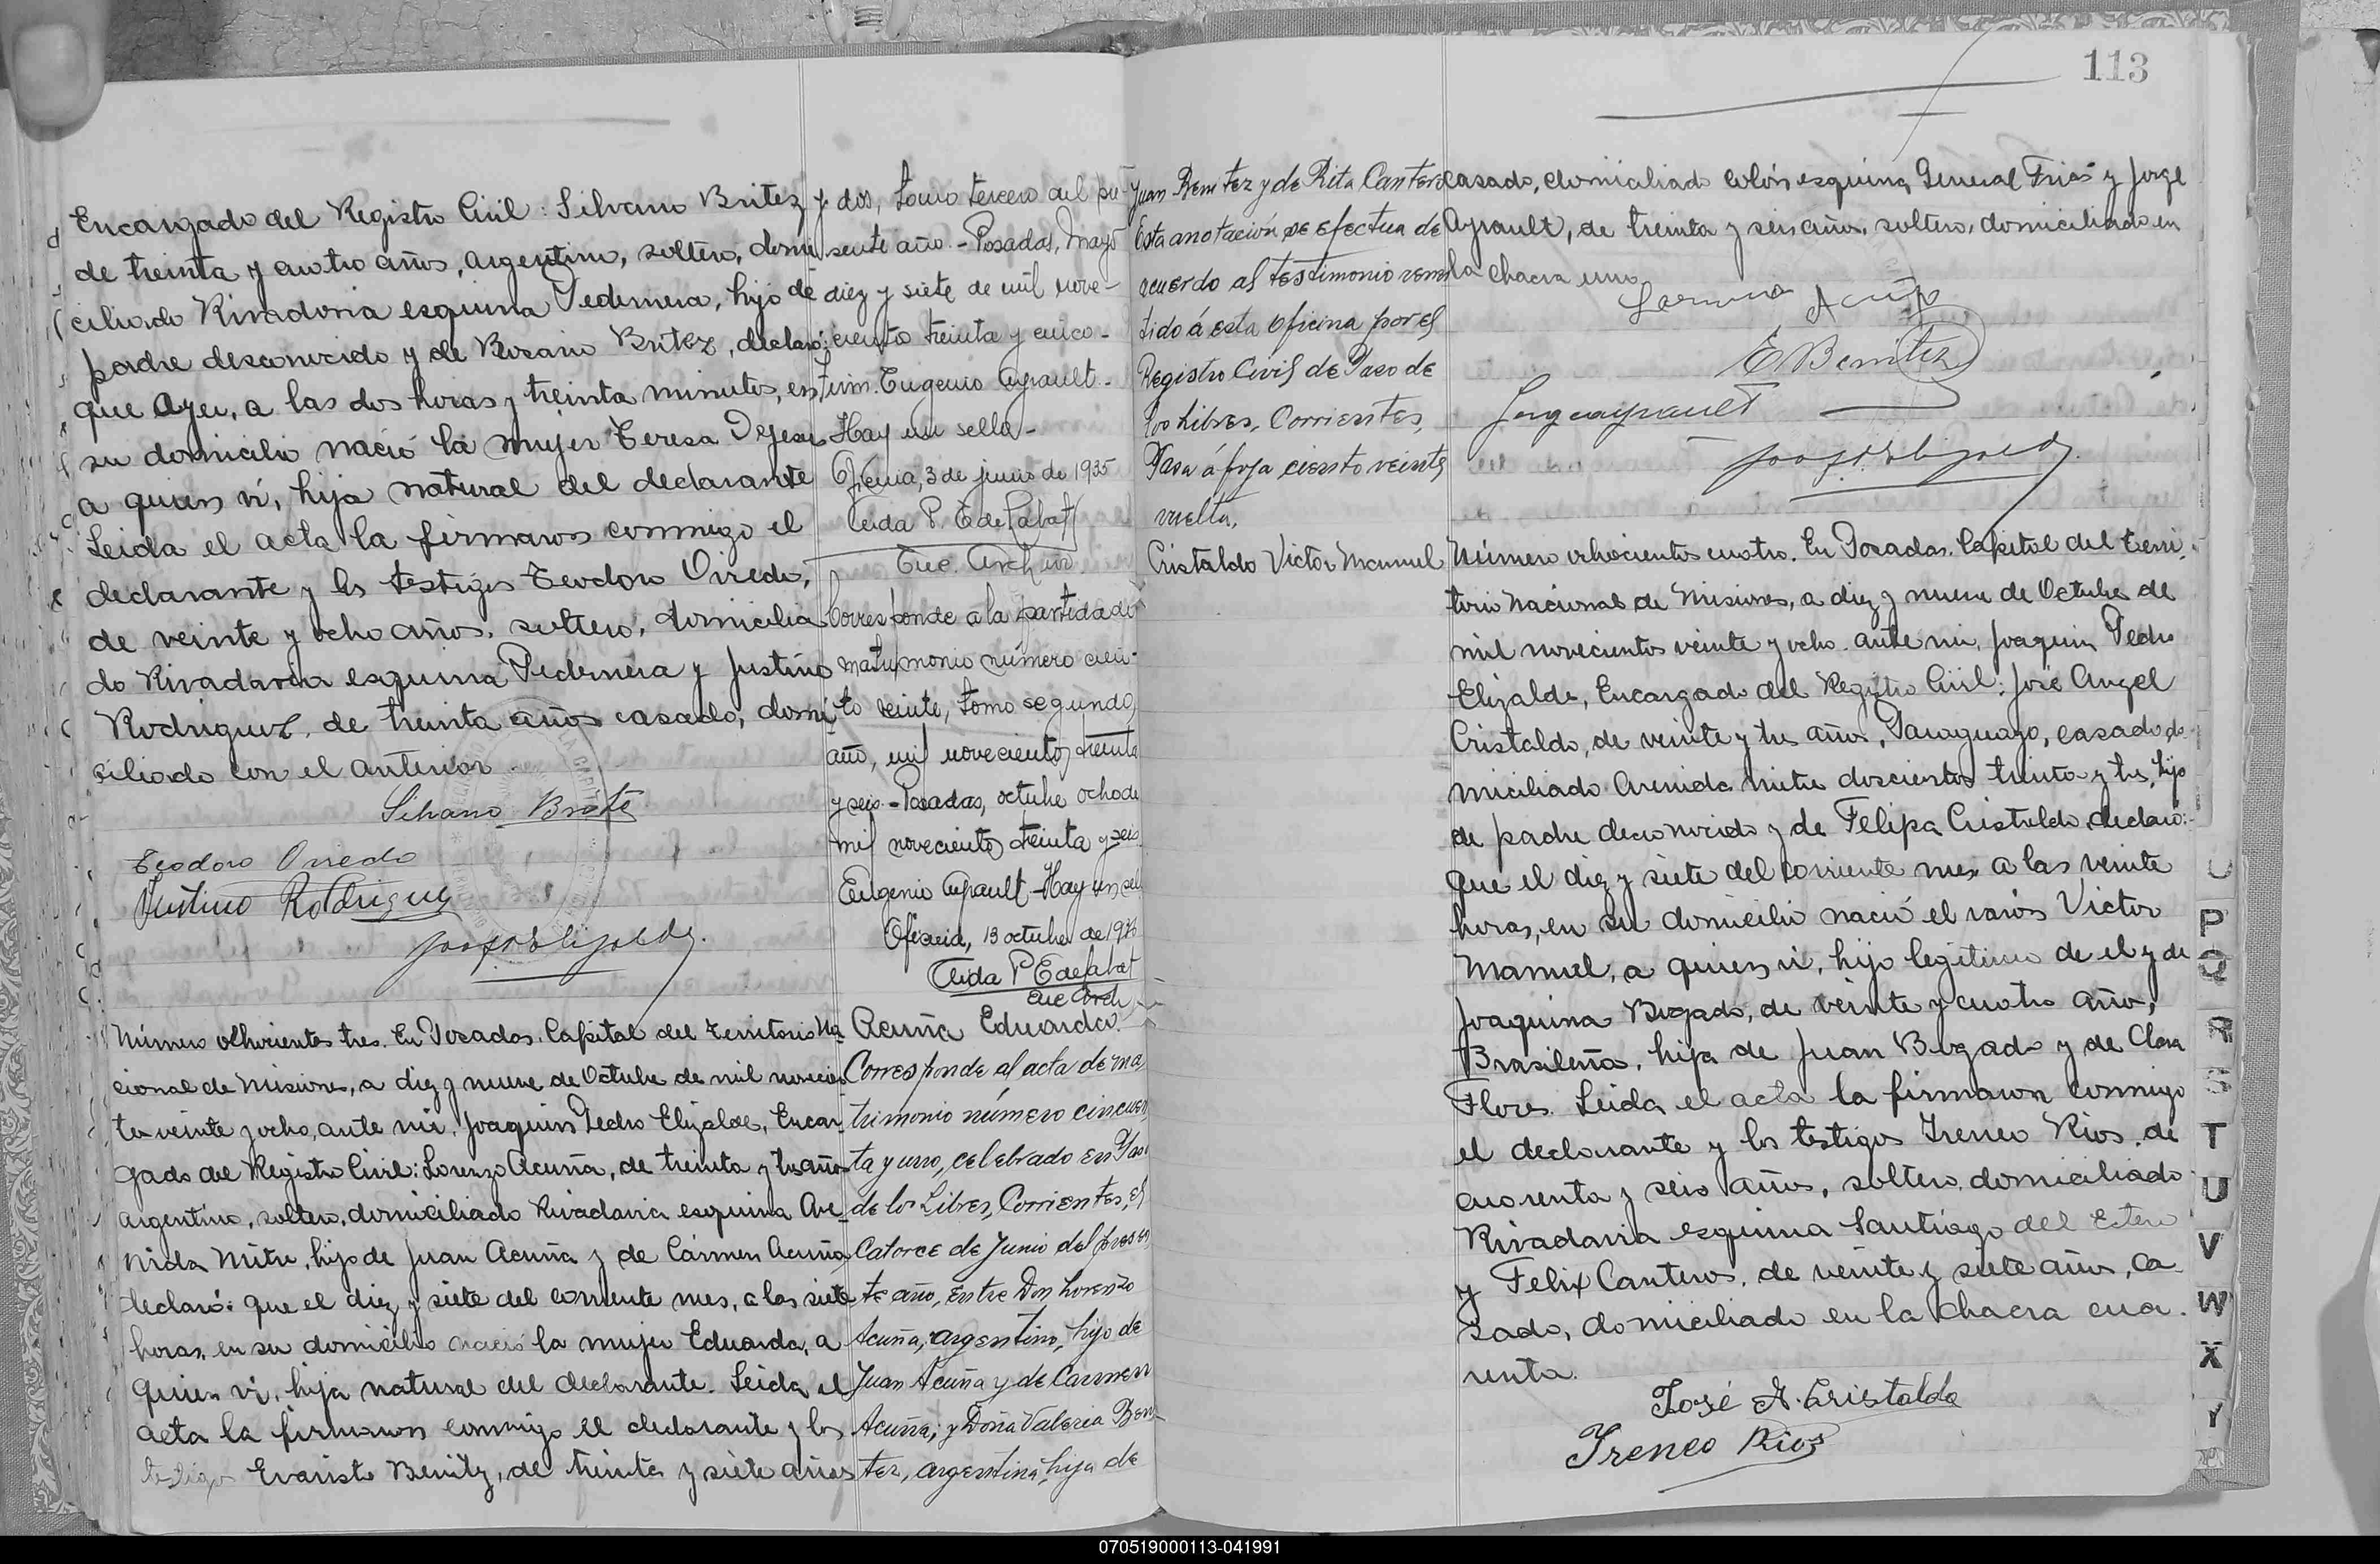 Encargado del Registro Civil: Silvano Britez
de treinta y cuatro años, argentino, soltero, domi
ciliado Rivadavia esquina Pedernera, hijo de
padre desconocido y de Rosario Britez, declaró:
que ayer, a las dos horas y treinta minutos, en
su domicilio nació la mujer Teresa Dejesus
a quien ví, hija natural del declarante
Leida el acta la firmaron conmigo el
declarante y los testigos Teodoro Oviedo,
de veinte y ocho años, soltero, domicilia
do Rivadavia esquina Pedernera y Justino
Rodriguez, de treinta años casado, domi
ciliado con el anterior
Silvano Brite
Teodoro Oviedo
Justino Rodriguez
Número ochocientos tres. En Posadas, Capital del Territorio Na
cional de Misiones, a diez y nueve de Octubre de mil novecien
tos veinte y ocho, ante mi, Joaquin Pedro Elizalde, Encar
gado del Registro Civil: Lorenzo Acuña, de treinta y tres años
argentino, soltero, domiciliado Rivadavia esquina Ave
nida Mitre, hijo de Juan Acuña y de Cármen Acuña,
declaró: que el diez y siete del corriente mes, a las siete
horas, en su domicilio nació la mujer Eduarda, a
quien ví, hija natural del declarante. Leida el
acta la firmaron conmigo el declarante y los
testigos Evaristo Benitez, de treinta y siete años
y dos, tomo tercero del pre-
sente año.- Posadas, Mayo
diez y siete de mil nove-
ciento treinta y cinco-
Firm. Eugenio Ayrault.-
Hay un sello-
Oficina, 3 de junio de 1935
Enc. Archivo
Corresponde a la partida de
matrimonio número cien-
to veinte, tomo segundo,
año, mil noveciento treinta
y seis.- Posadas, octubre ocho de
mil noveciento treinta y seis.
Eugenio Ayrault - Hay un sel
Oficina, 13 octubre de 1936
Enc Arch
Acuña Eduarda.
Corresponde al acta de ma
trimonio número cincuen
ta y uno, celebrado en Paso
de los Libres, Corrientes, el
Catorce de Junio del presen
te año, entre Don Lorenzo
Acuña, argentino, hijo de
Juan Acuña y de Carmen
Acuña; y Doña Valeria Beni
tez, argentina, hija de
113
Juan Benitez y de Rita Cantero
Esta anotación se efectua de
acuerdo al testimonio remi
tido á esta oficina por el
Registro Civil de Paso de
los Libres, Corrientes,
Pasa á foja ciento veinte
vuelta.
Cristaldo Victor Manuel
casado, domiciliado Colón esquina General Frias y Jorge
Ayrault, de treinta y seis años, soltero, domiciliado en
la chacra uno.
Lorenzo Acuña
E Benitez
Jorge Ayrault
Número ochocientos cuatro. En Posadas, Capital del Terri
torio Nacional de Misiones, a diez y nueve de Octubre de
mil novecientos veinte y ocho. ante mi, Joaquin Pedro
Elizalde, Encargado del Registro Civil: José Angel
Cristaldo, de veinte y tres años, Paraguayo, casado, do
miciliado Avenida Mitre doscientos treinta y tres, hijo
de padre desconocido y de Felipa Cristaldo, declaró:
que el diez y siete del corriente mes a las veinte
horas, en su domicilio nació el varón Victor
Manuel, a quien ví, hijo legitimo de el y de
Joaquina Bogado, de veinte y cuatro años,
Brasileña, hija de Juan Bogado y de Clara
Flores. Leida el acta la firmaron conmigo
el declarante y los testigos Ireneo Rios, de
cuarenta y seis años, soltero, domiciliado
Rivadavia esquina Santiago del Estero
y Felix Canteros, de veinte y siete años, ca
sado, domiciliado en la chacra cua
renta.
José A. Cristaldo
Ireneo Rios
P
Q
R
S
T
U
V
W
X
Y
070519000113-041991